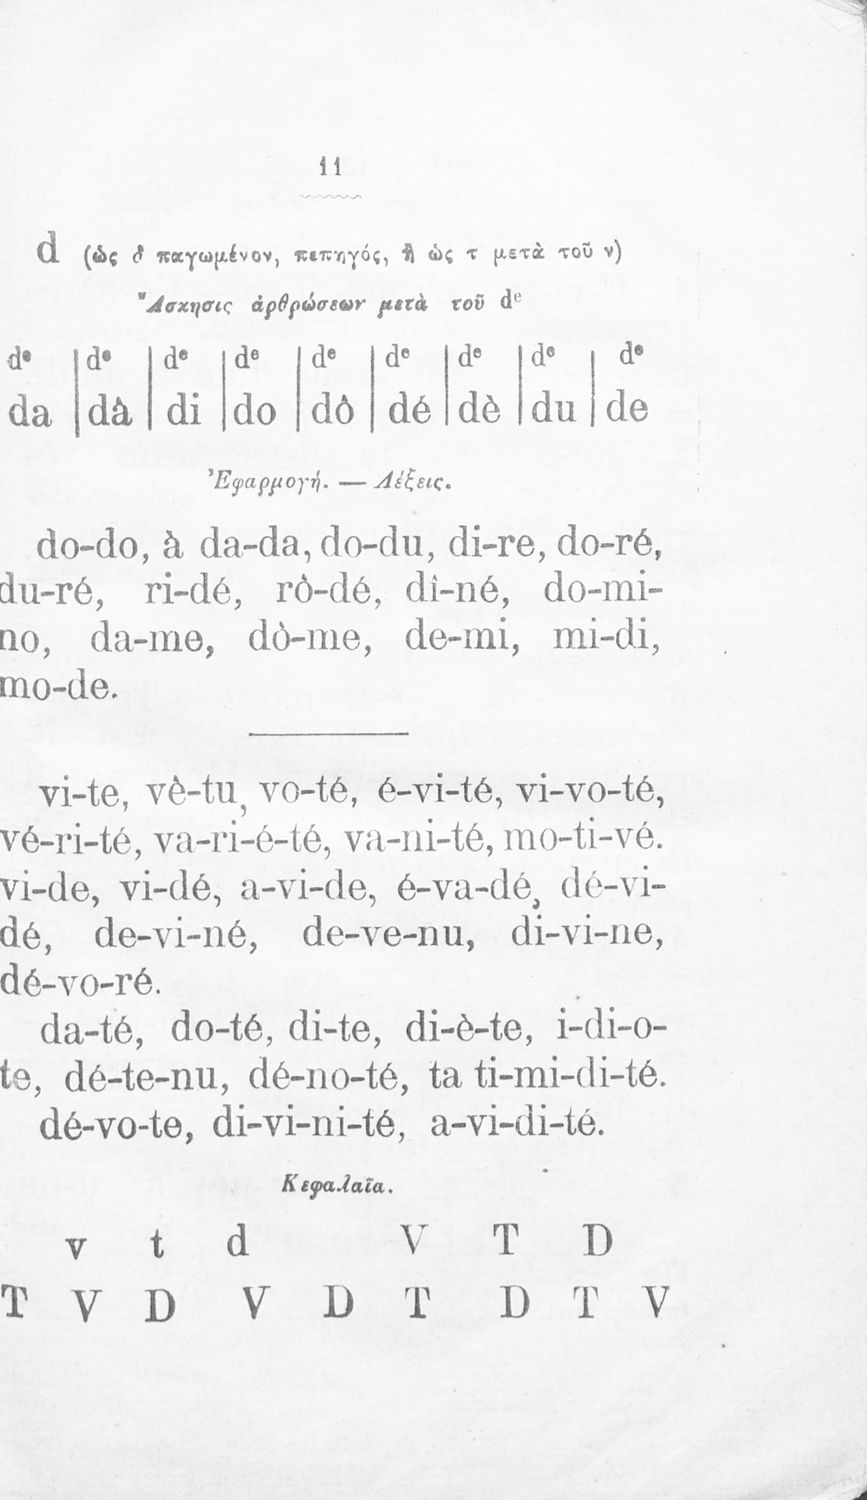 11
d (ὡς δ παγωμένον, πεπηγός, ἢ ὡς τ μετὰ τοῦ ν)
Ἄσκησις ἀρθρώσεων μετὰ τοῦ dᵉ
dᵉ | dᵉ | dᵉ | dᵉ | dᵉ | dᵉ | dᵉ | dᵉ | dᵉ
da | dà | di | do | dô | dé | dè | du | de
Ἐφαρμογή. — Λέξεις.
do-do, à da-da, do-du, di-re, do-ré,
du-ré, ri-dé, rô-dé, dî-né, do-mi-
no, da-me, dô-me, de-mi, mi-di,
mo-de.
vi-te, vê-tu, vo-té, é-vi-té, vi-vo-té,
vé-ri-té, va-ri-é-té, va-ni-té, mo-ti-vé.
vi-de, vi-dé, a-vi-de, é-va-dé, dé-vi-
dé, de-vi-né, de-ve-nu, di-vi-ne,
dé-vo-ré.
da-té, do-té, di-te, di-è-te, i-di-o-
te, dé-te-nu, dé-no-té, ta ti-mi-di-té.
dé-vo-te, di-vi-ni-té, a-vi-di-té.
Κεφαλαῖα.
v t d V T D
T V D V D T D T V